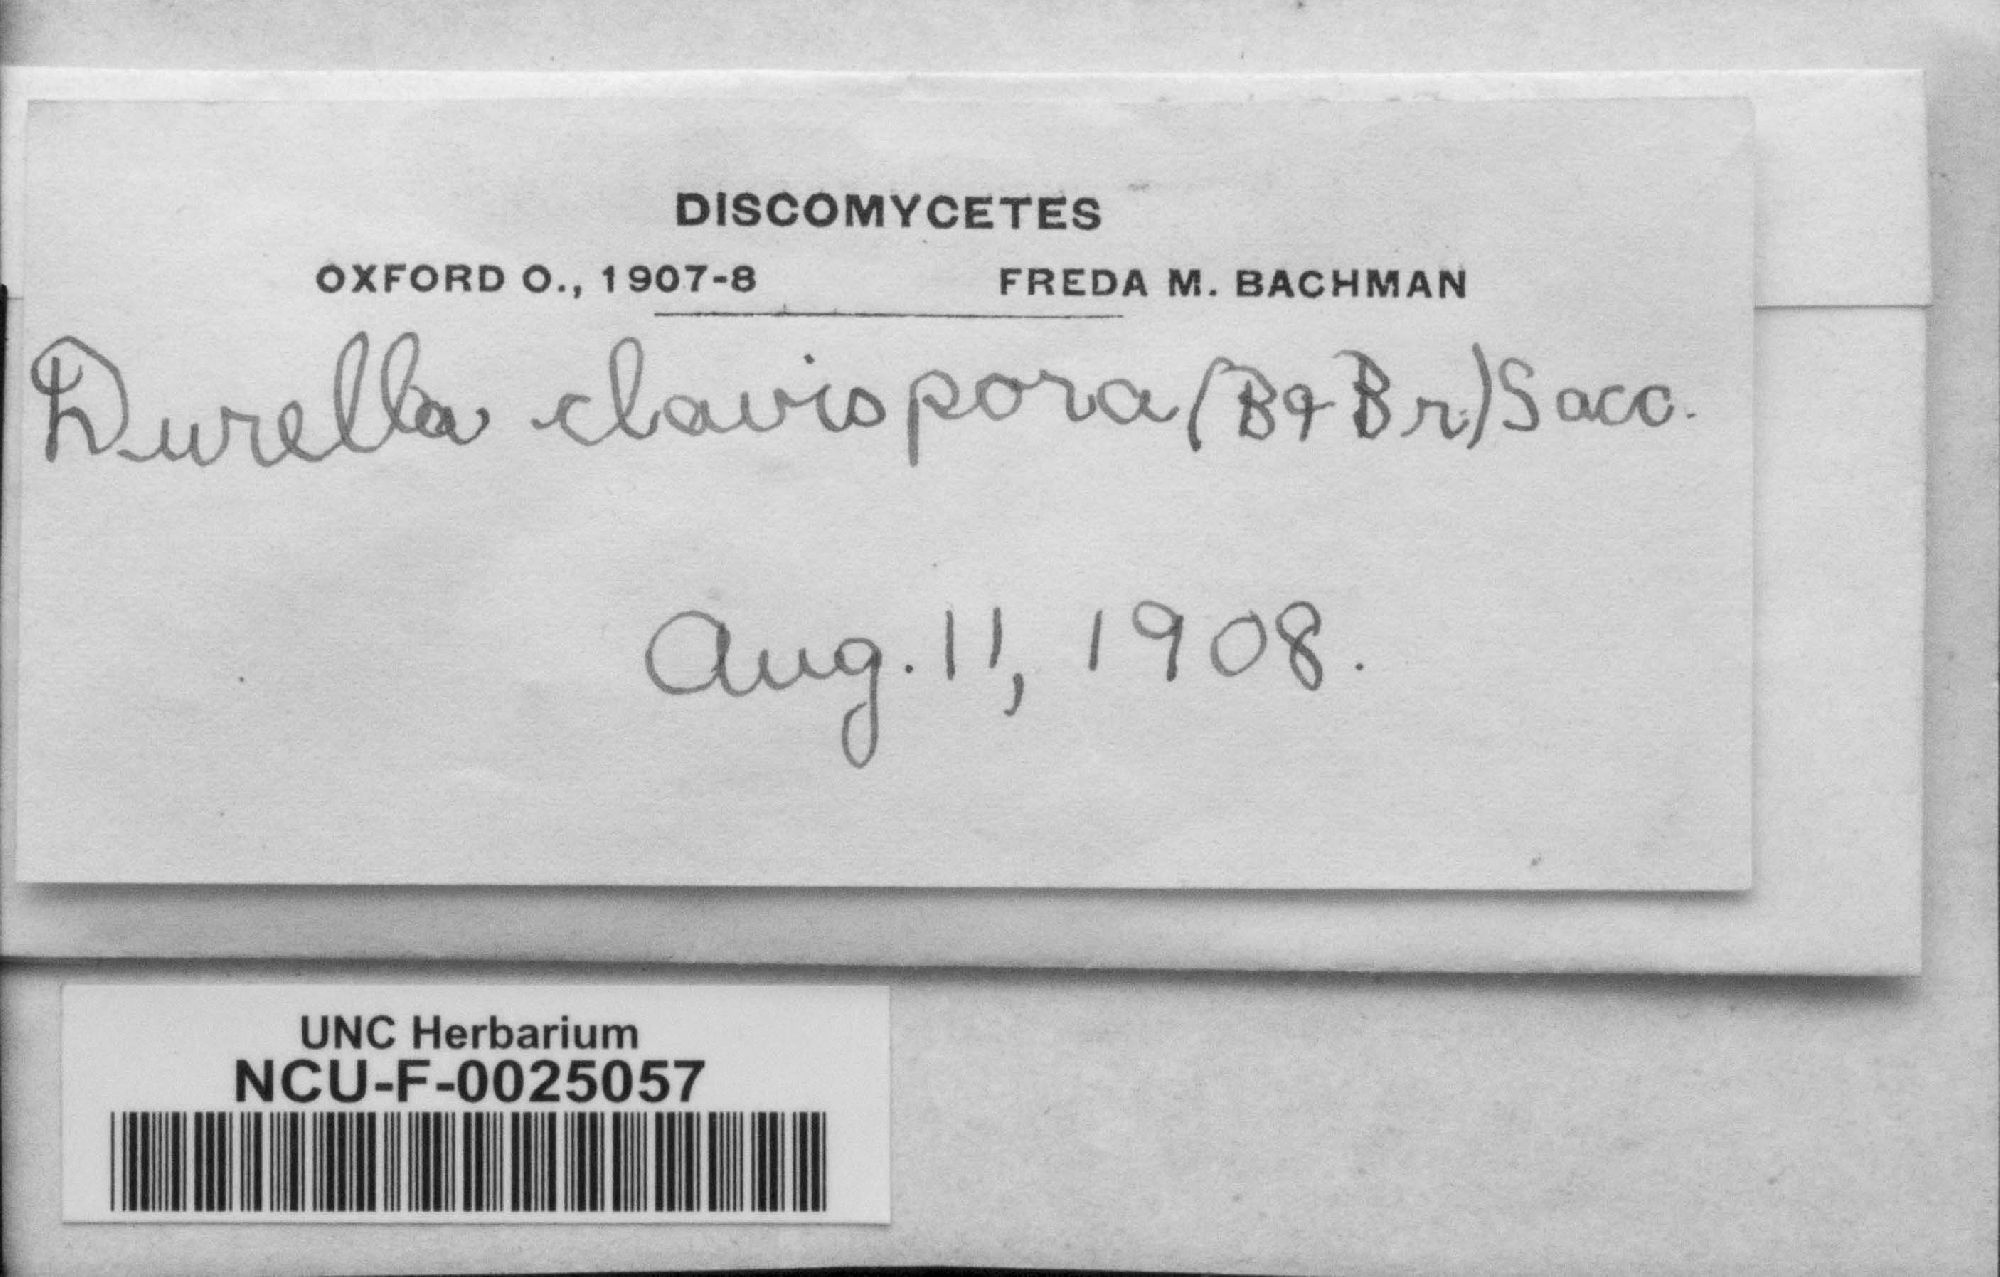 DISCOMYCETES
OXFORD O., 1907-8 FREDA M. BACHMAN
Durella clavispora (B & Br.) Sacc.
Aug. 11, 1908.
UNC Herbarium
NCU-F-0025057